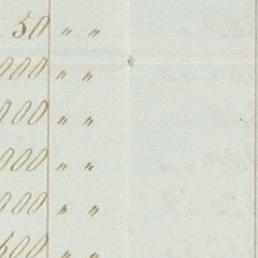 50 " "
000 " "
000 " "
000 " "
000 " "
600 " "